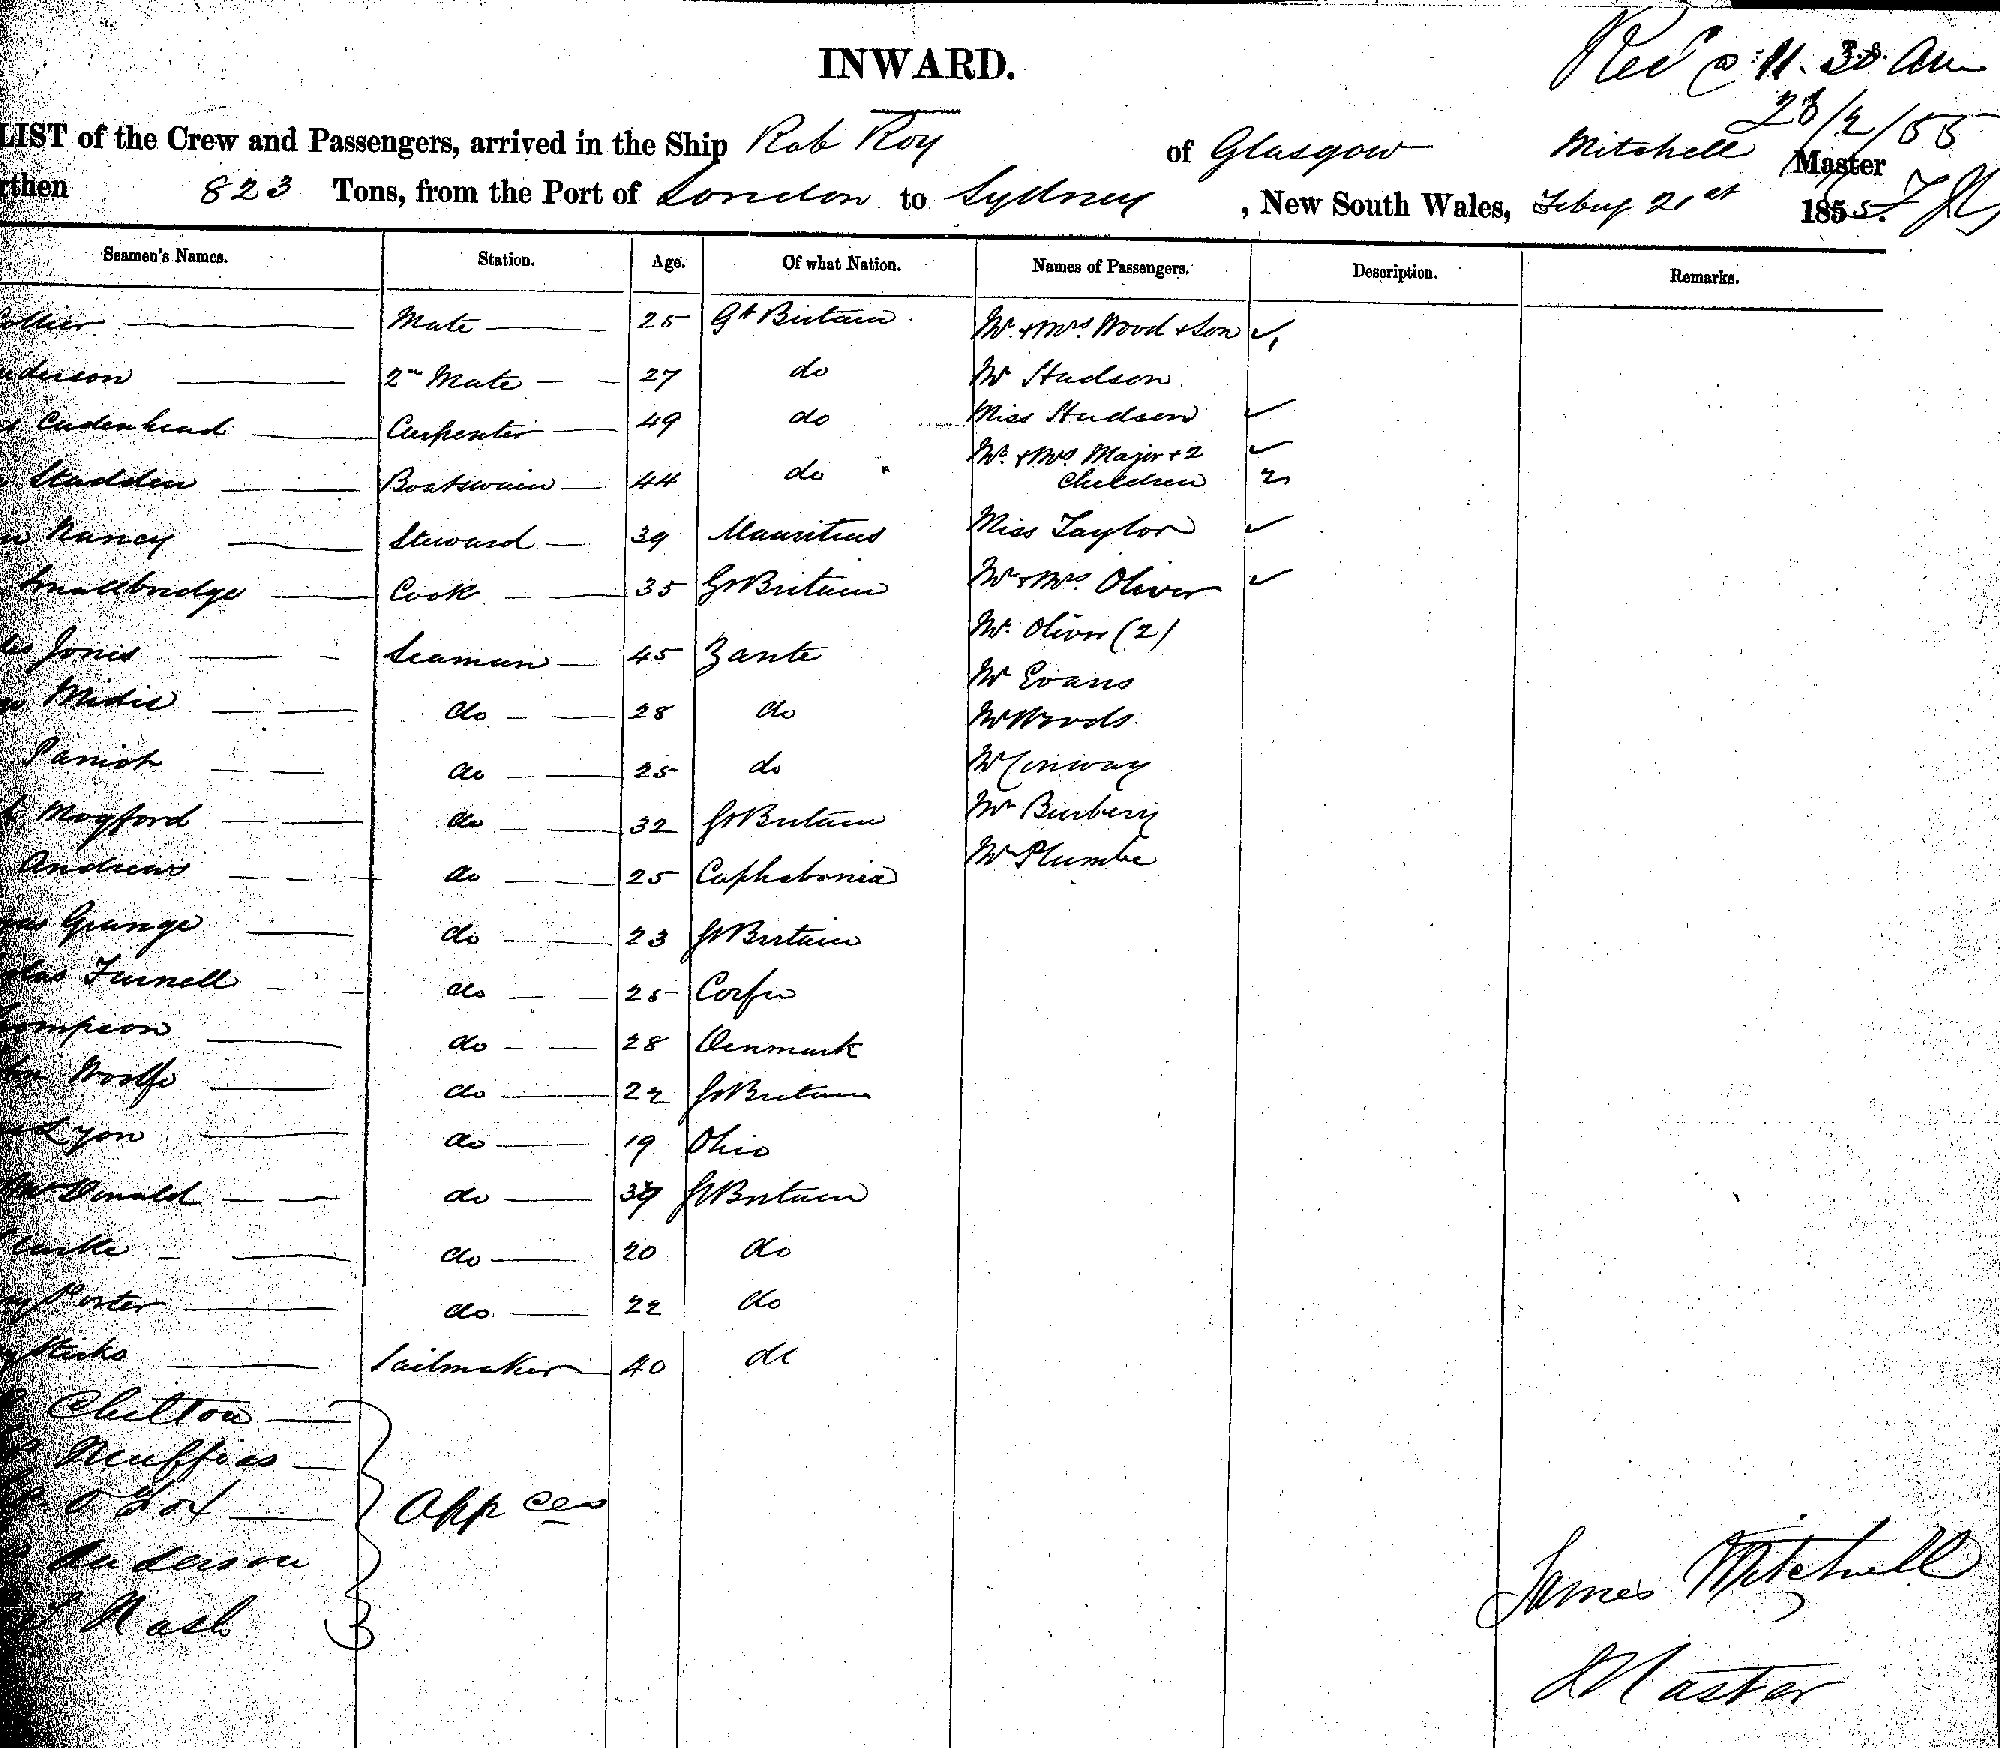 INWARD.
Recd @ 11.30 am
23/2/55
LIST of the Crew and Passengers, arrived in the Ship Rob Roy of Glasgow Mitchell Master
rthen 823 Tons, from the Port of London to Sydney, New South Wales, Feby 21st 1855.
Seamen's Names. Station. Age. Of what Nation. Names of Passengers. Description. Remarks.
Collier Mate 25 Gt Britain Mr & Mrs Wood & Son
nderson 2nd Mate 27 do Mr Hudson
Cadenhead Carpenter 49 do Miss Hudson
Stadden Boatswain 44 do Mr & Mrs Major & 2 children 2
Nancy Steward 39 Mauritius Miss Taylor
Smallbridge Cook 35 Gt Britain Mr & Mrs Oliver
Jones Seaman 45 Zante Mr Oliver (2)
do 28 do Mr Evans
do 25 do Mr Woods
Mogford do 32 Gt Britain Mr Conway
Andrews do 25 Cephalonia Mr Burbery
Grange do 23 Gt Britain Mr Plumbe
Furnell do 25 Corfu
ompson do 28 Denmark
Woolfe do 22 Gt Britain
Lyon do 19 Ohio
McDonald do Gt Britain
Clarke do 20 do
Porter do 22 do
Sailmaker 40 do
Chilton
Fox Appces
Anderson
Nash
James Mitchell
Master